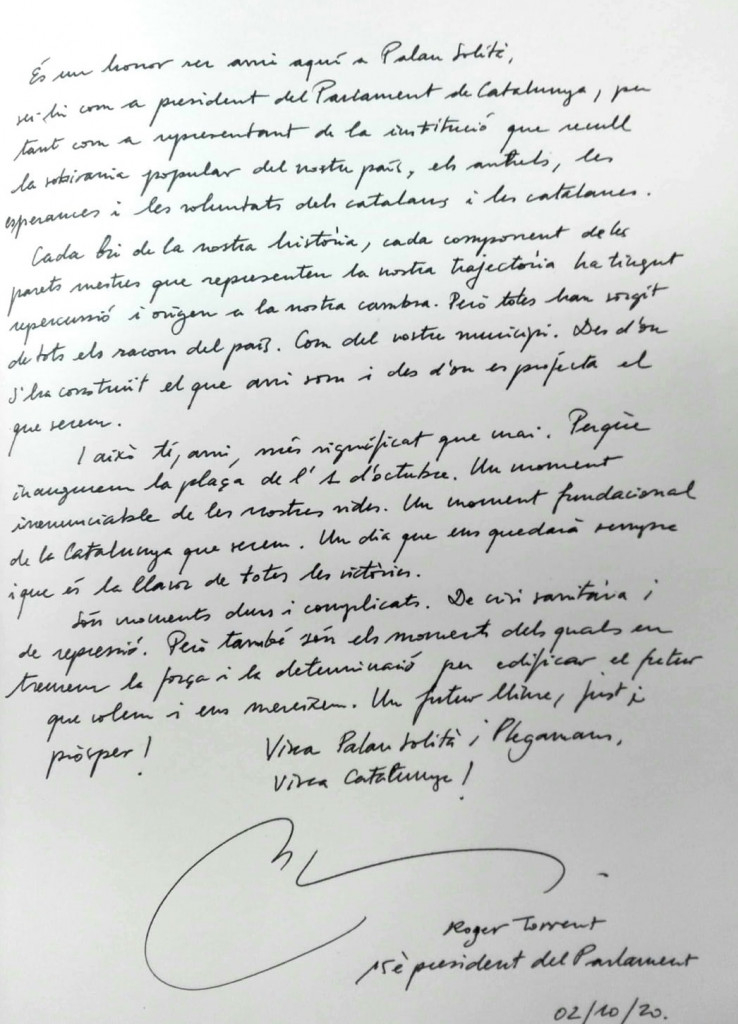 És un honor ser avui aquí a Palau Solità,
ser-hi com a president del Parlament de Catalunya, per
tant com a representant de la institució que recull
la sobirania popular del nostre país, els anhels, les
esperances i les voluntats dels catalans i les catalanes.
Cada bri de la nostra història, cada component de les
parets mestres que representen la nostra trajectòria ha tingut
repercussió i origen a la nostra cambra. Però totes han sorgit
de tots els racons del país. Com del vostre municipi. Des d'on
s'ha construït el que avui som i des d'on es projecta el
que serem.
I això té, avui, més significat que mai. Perquè
inaugurem la plaça de l'1 d'octubre. Un moment
irrenunciable de les nostres vides. Un moment fundacional
de la Catalunya que serem. Un dia que ens quedarà sempre
i que és la llavor de totes les victòries.
Són moments durs i complicats. De crisi sanitària i
de repressió. Però també són els moments dels quals en
traurem la força i la determinació per edificar el futur
que volem i ens mereixem. Un futur lliure, just i
pròsper!
Visca Palau Solità i Plegamans,
Visca Catalunya!
Roger Torrent
15è president del Parlament
02/10/20.